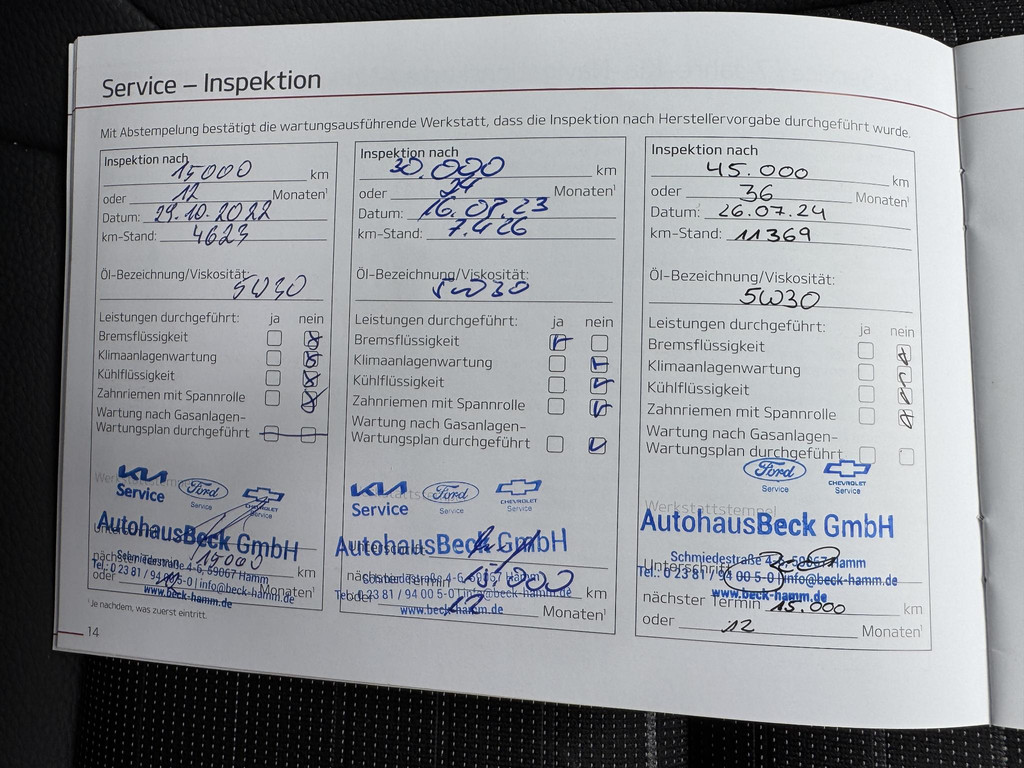 Service – Inspektion
Mit Abstempelung bestätigt die wartungsausführende Werkstatt, dass die Inspektion nach Herstellervorgabe durchgeführt wurde.
Inspektion nach 15000 km
oder 12 Monaten¹
Datum: 29.10.2022
km-Stand: 4623
Öl-Bezeichnung/Viskosität:
5W30
Leistungen durchgeführt: ja nein
Bremsflüssigkeit
Klimaanlagenwartung
Kühlflüssigkeit
Zahnriemen mit Spannrolle
Wartung nach Gasanlagen-
Wartungsplan durchgeführt
KIA Ford CHEVROLET
Service Service Service
AutohausBeck GmbH
Schmiedestraße 4-6, 59067 Hamm
nächster Termin 15000 km
Tel.: 0 23 81 / 94 00 5-0 | info@beck-hamm.de
oder 12 Monaten¹
www.beck-hamm.de
¹Je nachdem, was zuerst eintritt.
14
Inspektion nach 30.000 km
oder 24 Monaten¹
Datum: 16.08.23
km-Stand: 7.426
Öl-Bezeichnung/Viskosität:
5W30
Leistungen durchgeführt: ja nein
Bremsflüssigkeit
Klimaanlagenwartung
Kühlflüssigkeit
Zahnriemen mit Spannrolle
Wartung nach Gasanlagen-
Wartungsplan durchgeführt
KIA Ford CHEVROLET
Service Service Service
AutohausBeck GmbH
Schmiedestraße 4-6, 59067 Hamm
nächster Termin 15.000 km
Tel.: 0 23 81 / 94 00 5-0 | info@beck-hamm.de
oder 12 Monaten¹
www.beck-hamm.de
Inspektion nach 45.000 km
oder 36 Monaten¹
Datum: 26.07.24
km-Stand: 11369
Öl-Bezeichnung/Viskosität:
5W30
Leistungen durchgeführt: ja nein
Bremsflüssigkeit
Klimaanlagenwartung
Kühlflüssigkeit
Zahnriemen mit Spannrolle
Wartung nach Gasanlagen-
Wartungsplan durchgeführt
Ford CHEVROLET
Service Service
Werkstattstempel
AutohausBeck GmbH
Schmiedestraße 4-6, 59067 Hamm
Unterschrift
Tel.: 0 23 81 / 94 00 5-0 | info@beck-hamm.de
www.beck-hamm.de
nächster Termin 15.000 km
oder 12 Monaten¹